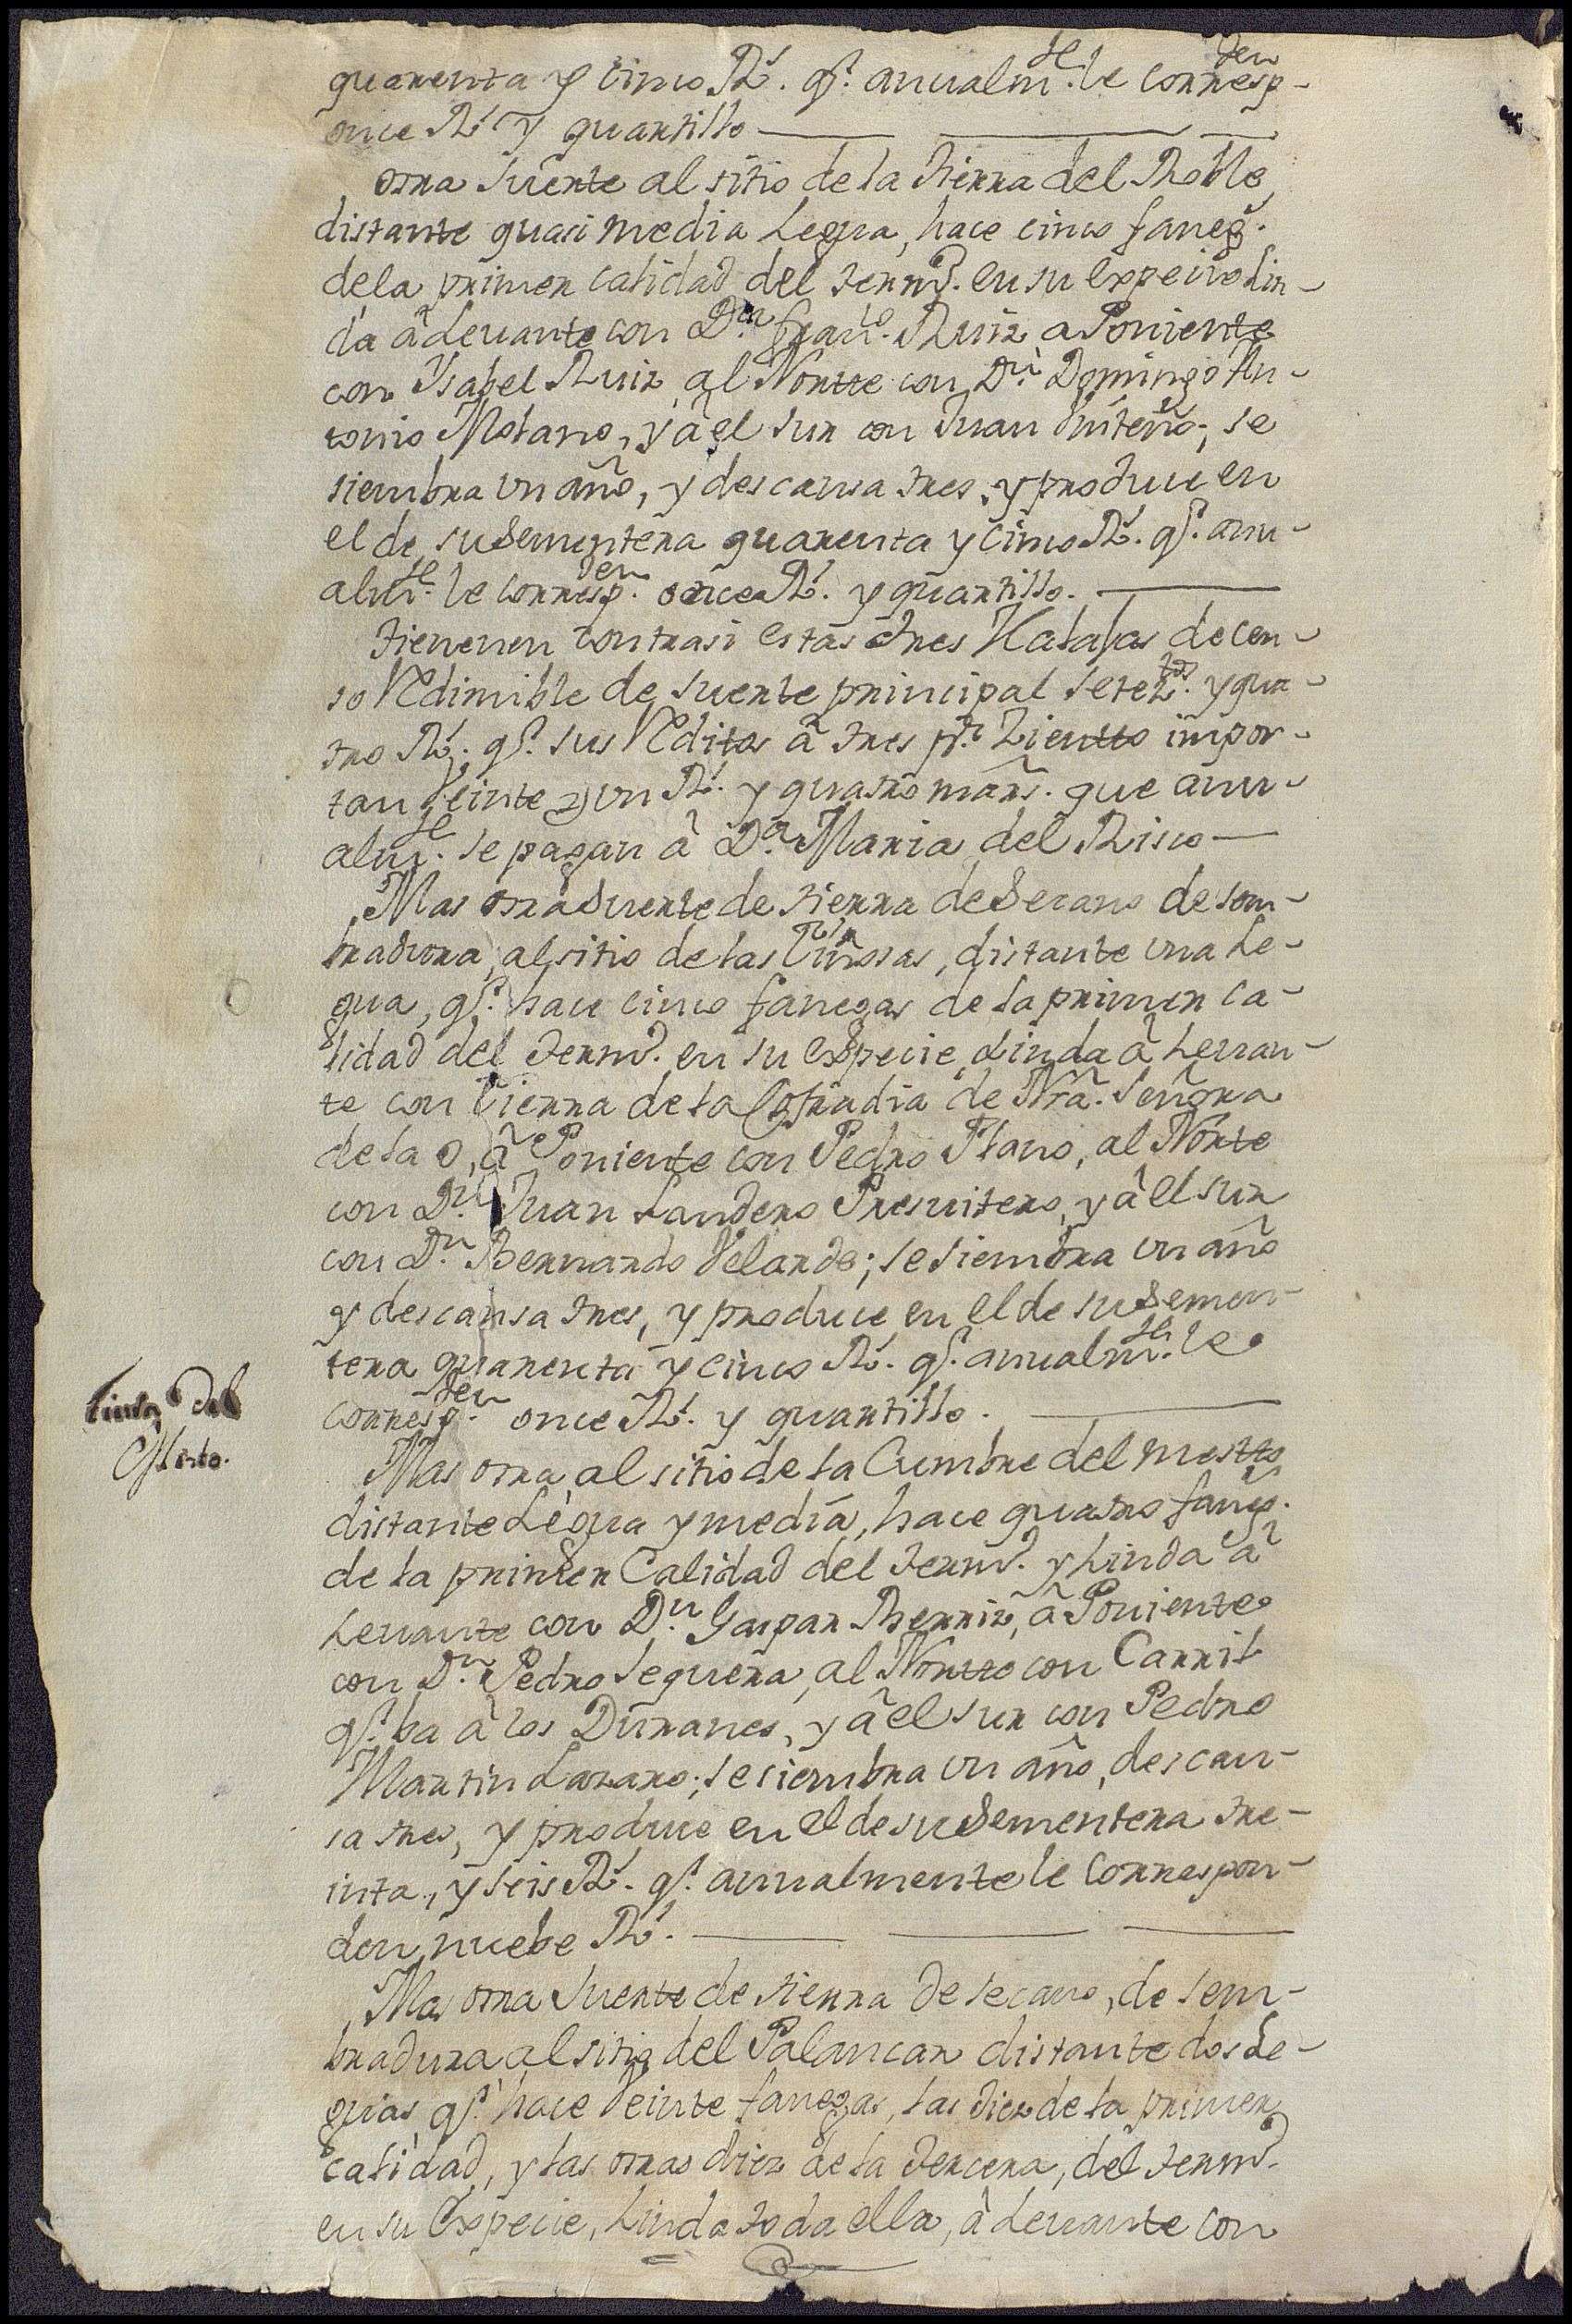 quarenta y cinco R.s q.e anualm.te le corresp.den
once R.s y quartillo
otra Suerte al sitio de la tierra del Roble
distante quasi media Legua, hace cinco faneg.s
dela primer calidad del term.o en su expecie lin-
da â Levante con D.n Fran.co Ruiz a Poniente
con Ysabel Ruiz, al Nortte con D.n Domingo An-
tonio Molano, y â el Sur con Juan se
siembra un año, y descansa tres, y produce en
el de su Sementera quarenta y cinco R.s q.e anu-
alm.te le corresp.den once R.s y quartillo.
tienenen contrasi estas tres Hatalas de cen-
so Redimible de Suerte principal setez.tos y qua-
tro R.s q.e sus Reditos â tres p.r Zientto impor-
tan Veinte y un R.s y quatro mãrs. que anu-
alm.te se pagan â D.a Maria del Risco
Mas otra Suerte de tierra de Secano de sem-
bradura, al sitio de las distante una Le-
gua, q.e hace cinco fanegas de la primer ca-
lidad del term.o en su expecie, Linda â Levan-
te con tierra de la Cofradia de Nrã. Señora
de la O, â Poniente con Pedro Plano, al Norte
con D.n Juan Landero Presvitero, y â el Sur
con D.n Bernardo Velarde; se siembra un año
y descansa tres, y produce en el de su Semen-
tera quarenta y cinco R.s q.e anualm.te le
corresp.den once R.s y quartillo.
del
Mas otra al sitio de la Cumbre del mestto
distante Legua y media, hace quatro faneg.s
de la primer Calidad del term.o y Linda â
Levante con D.n Gaspar Berriz, â Poniente
con D.n Pedro Seguera, al Nortte con Carril
q.e ba â los Duranes, y â el Sur con Pedro
Martin Lazaro; se siembra un año, descan-
sa tres, y produce en el de su Sementera tre-
inta, y seis R.s q.e anualmente le correspon-
den nuebe R.s
Mas otra Suerte de tierra de secano, de sem-
bradura al sitio del Palancar distante dos Le-
guas, q.e hace Veinte fanegas, las diez de la primer
calidad, y las otras diez de la tercera, del term.o
en su Expecie, Linda toda ella, â Levante con